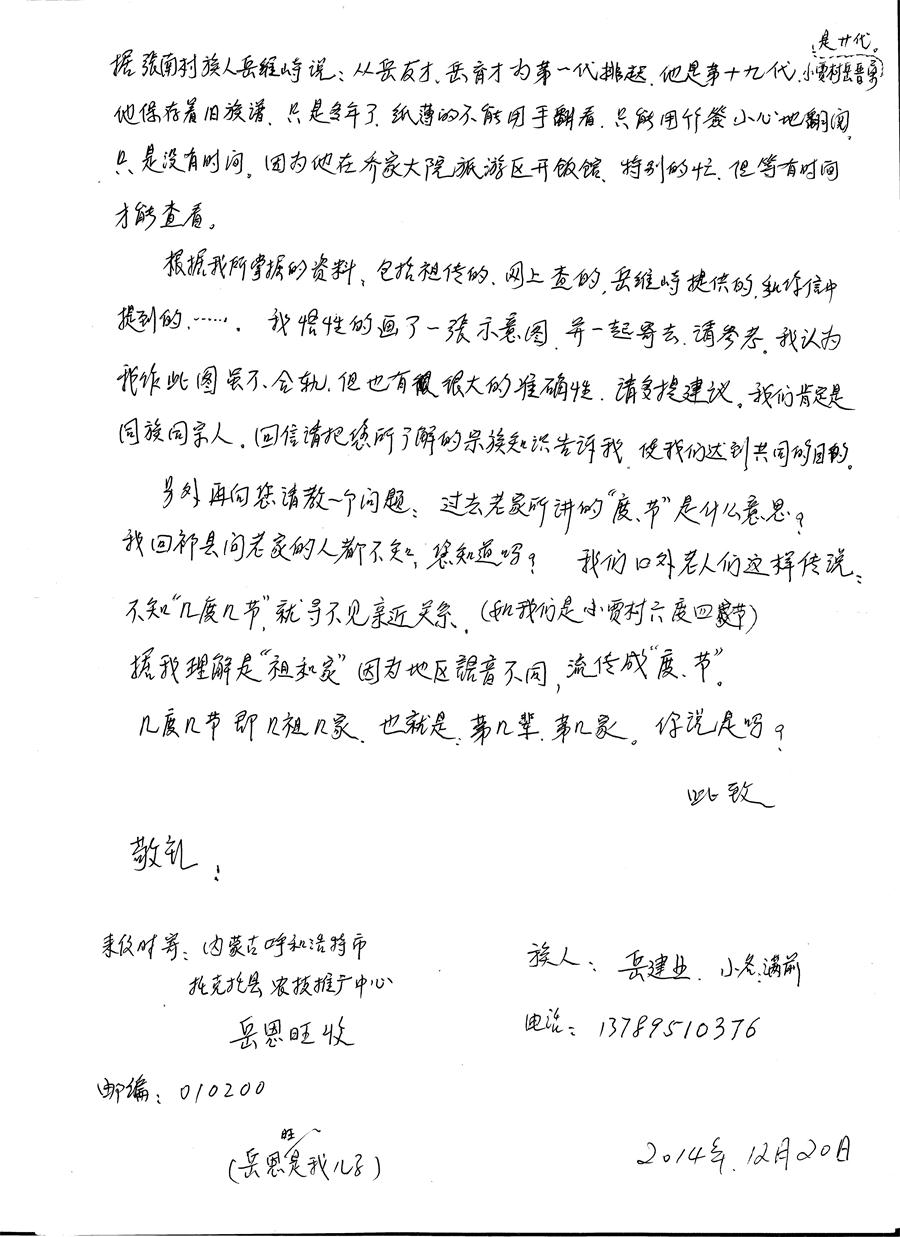 是廿代。
据张南村族人岳维崎说：从岳友才、岳育才为第一代排起，他是第十九代，小贾村岳晋勇
他保存着旧族谱，只是多年了，纸薄的不能用手翻看，只能用竹签小心地翻阅，
只是没有时间。因为他在乔家大院旅游区开饭馆、特别的忙，但等有时间
才能查看。
根据我所掌据的资料，包括祖传的、网上查的，岳维崎提供的，和你信中
提到的、……，我悟性的画了一张示意图，并一起寄去，请参考。我认为
我作此图虽不合轨，但也有很大的准确性，请多提建议。我们肯定是
同族同宗人。回信请把您所了解的宗族知识告诉我，使我们达到共同的目的。
另外再向您请教一个问题：过去老家所讲的“度、节”是什么意思？
我回祁县问老家的人都不知，您知道吗？ 我们口外老人们这样传说：
不知“几度几节”，就寻不见亲近关系，（如我们是小贾村六度四节）
据我理解是“祖和家”因为地区語音不同，流传成“度、节”。
几度几节即几祖几家、也就是：第几辈、第几家。你说是吗？
此致
敬礼！
来信时寄：内蒙古呼和浩特市
托克托县农技推广中心
岳恩旺收
邮编：010200
（岳恩旺是我儿子）
族人：岳建业、小名：满前
电话：13789510376
2014年、12月20日